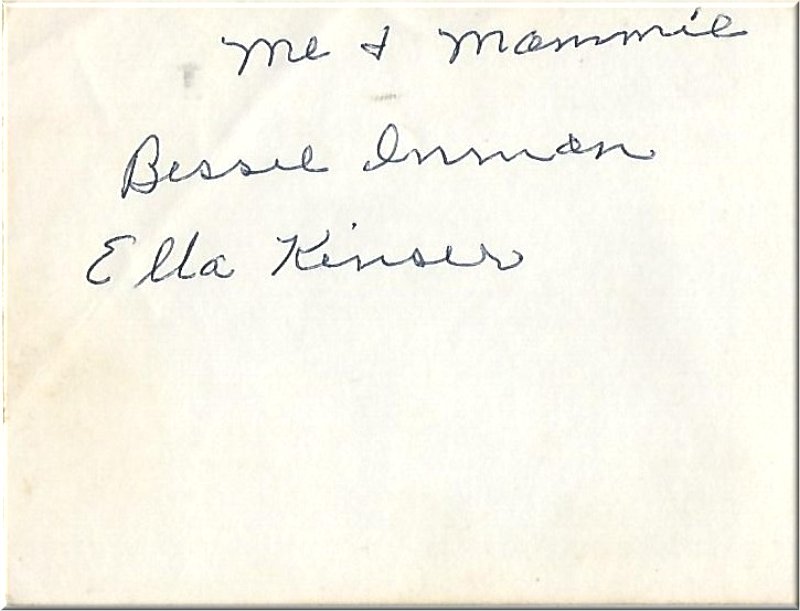 Me & Mammie
Bessie Inman
Ella Kinser